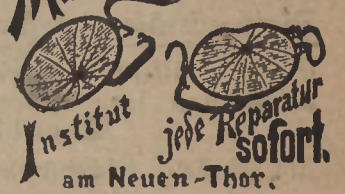 Institut
jede Reparatur
sofort.
am Neuen-Thor.